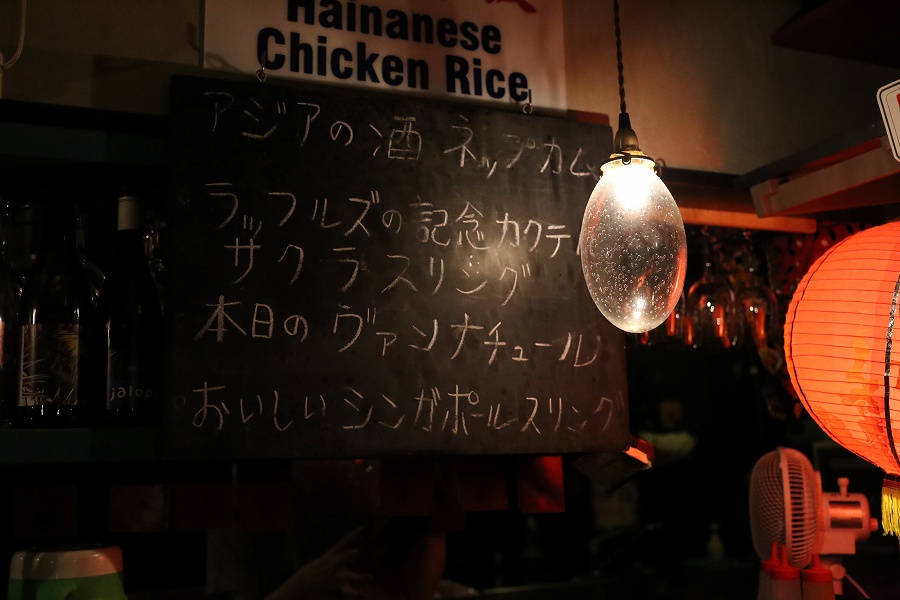 Hainanese
Chicken Rice
アジアの酒 ネップカム
ラッフルズの記念カクテル
サクラスリング
本日の ヴァンナチュール
おいしいシンガポールスリング
jalop